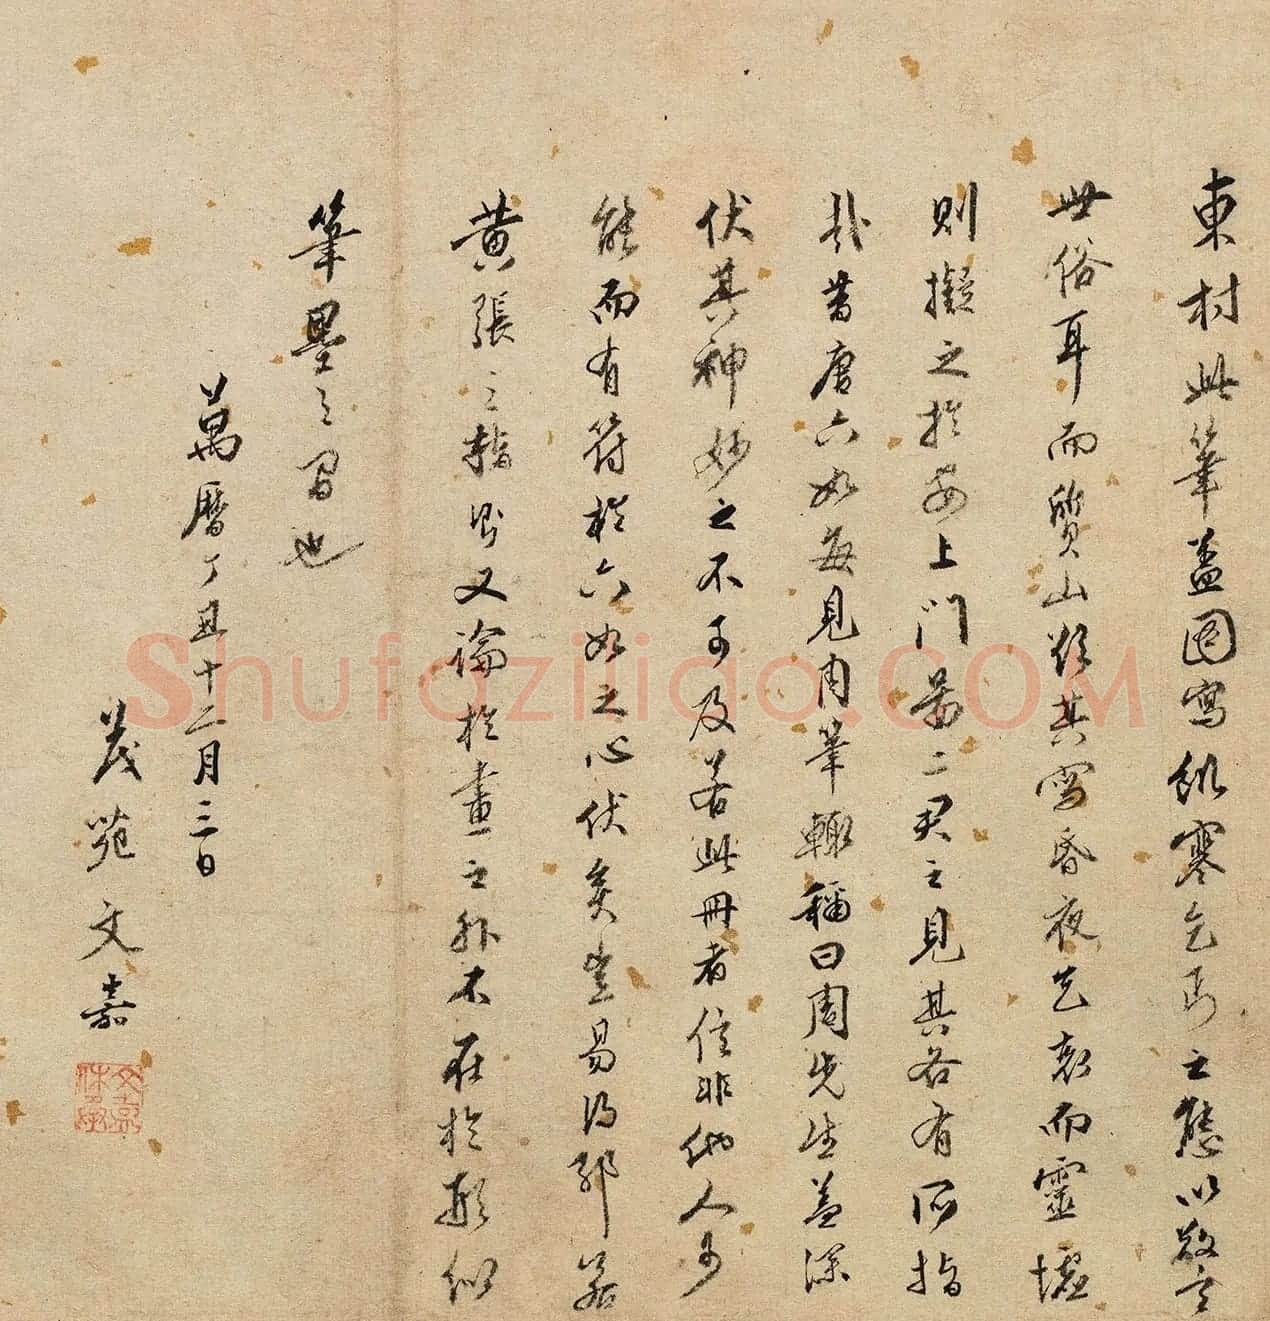 東村此筆蓋圖寫飢寒乞丐之態以警
世俗耳而質山則其寫昏夜乞哀而靈墟
則擬之於安上門昷二君之見其各有所指
哉昔唐六如每見周筆輒稱曰周先生蓋深
伏其神妙之不可及若此冊者信非他人可
能而有符於六如之心伏矣豈易得耶若
黃張之指則又論於畫之外不在於形似
筆墨之間也
萬曆丁丑十二月三日
茂苑文嘉
Shufaziliao.COM